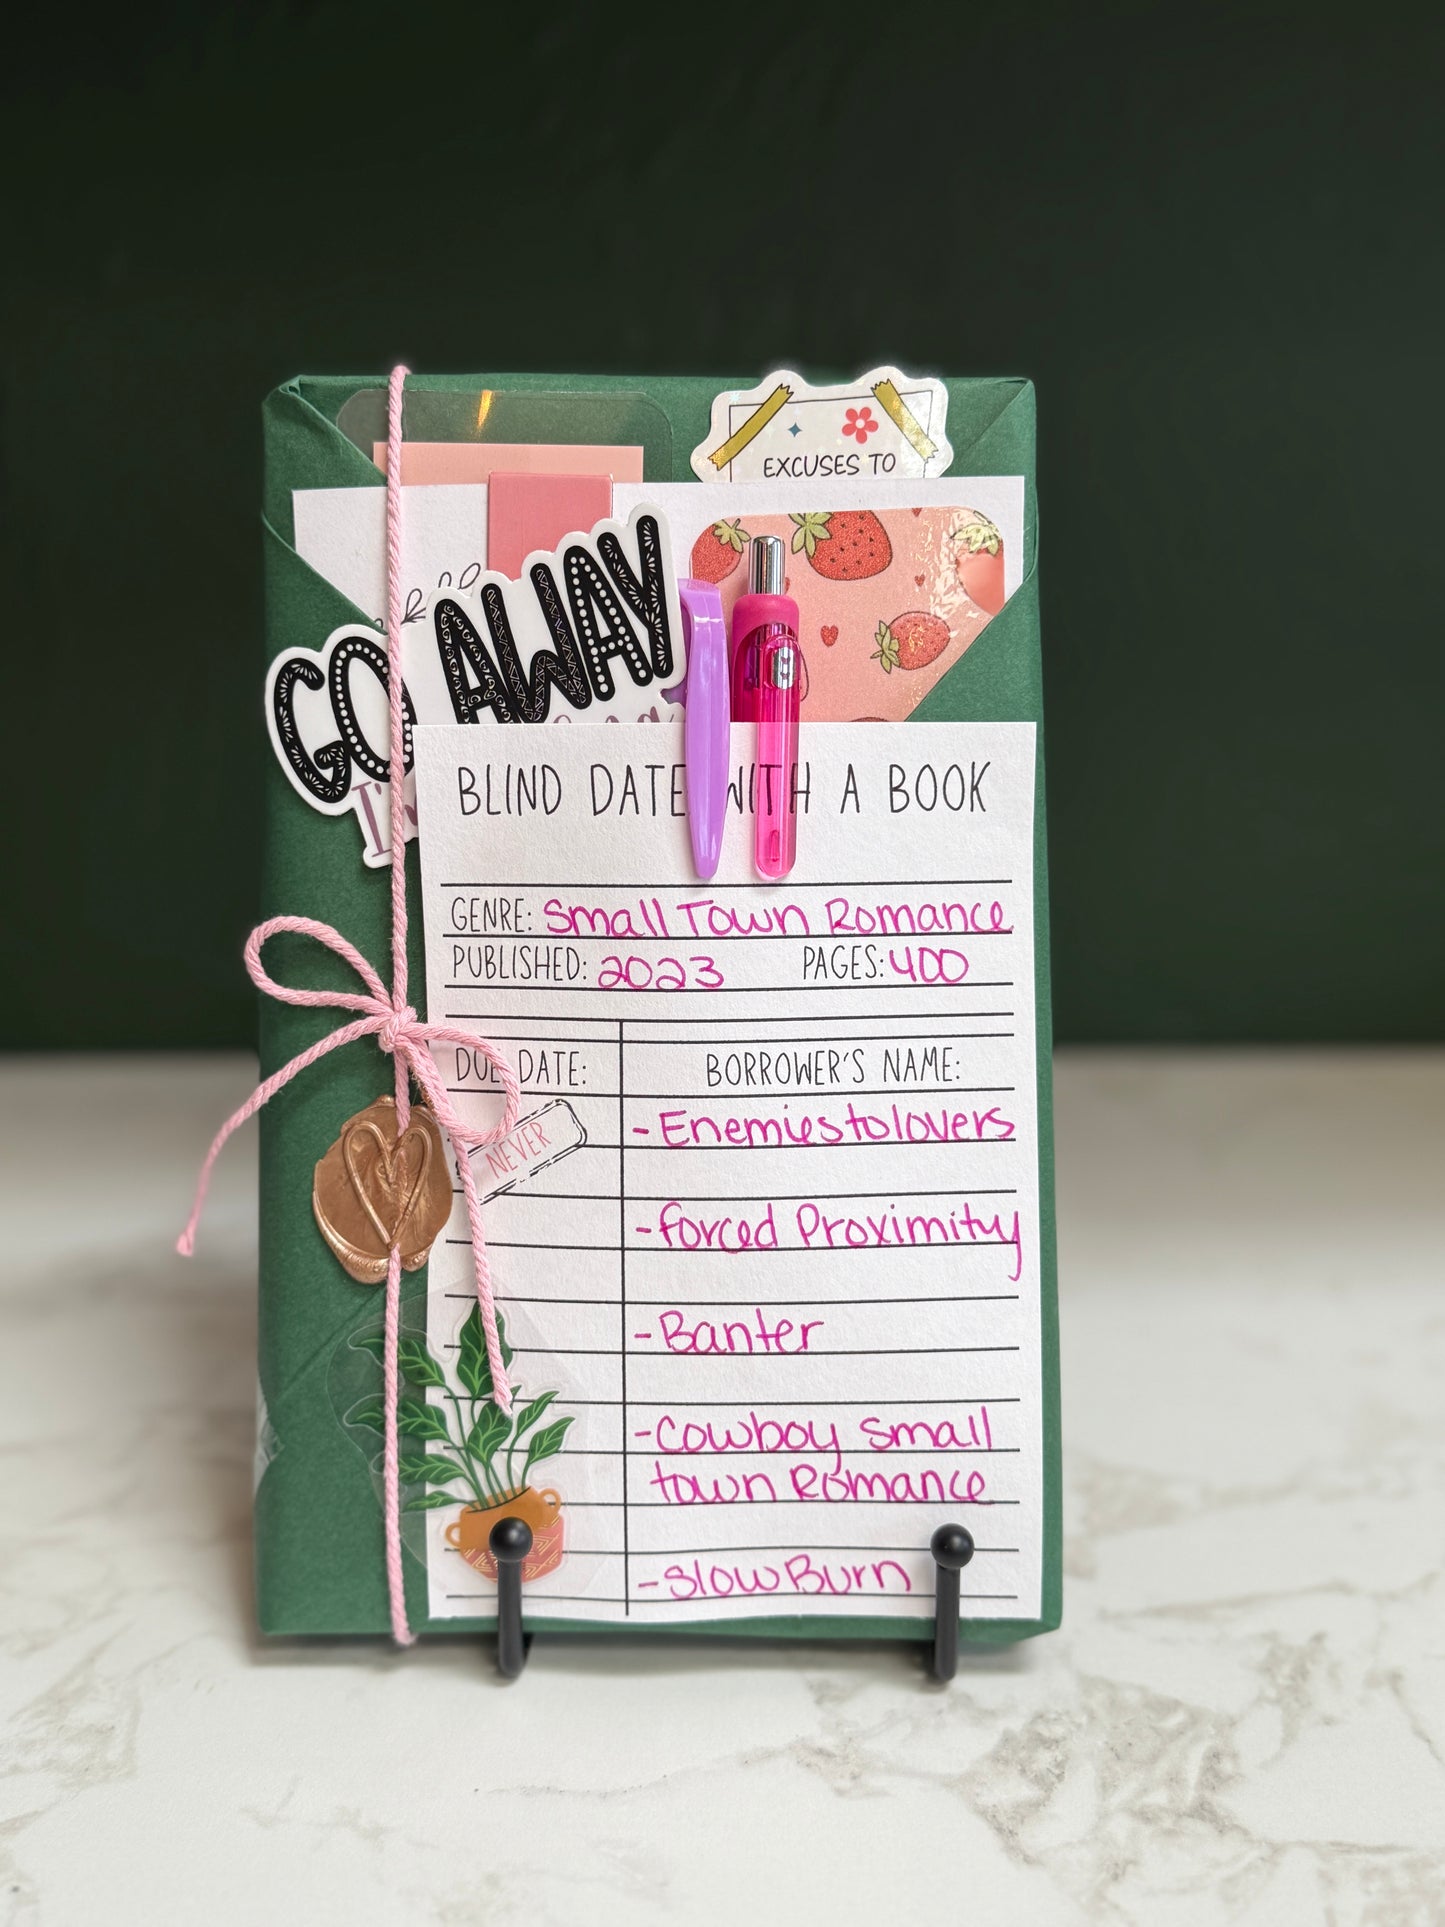 EXCUSES TO
GO AWAY
I'm
BLIND DATE WITH A BOOK
GENRE: Small Town Romance
PUBLISHED: 2023 PAGES: 400
DUE DATE: BORROWER'S NAME:
NEVER
- Enemies to lovers
- forced Proximity
- Banter
- Cowboy Small
town Romance
- Slow Burn